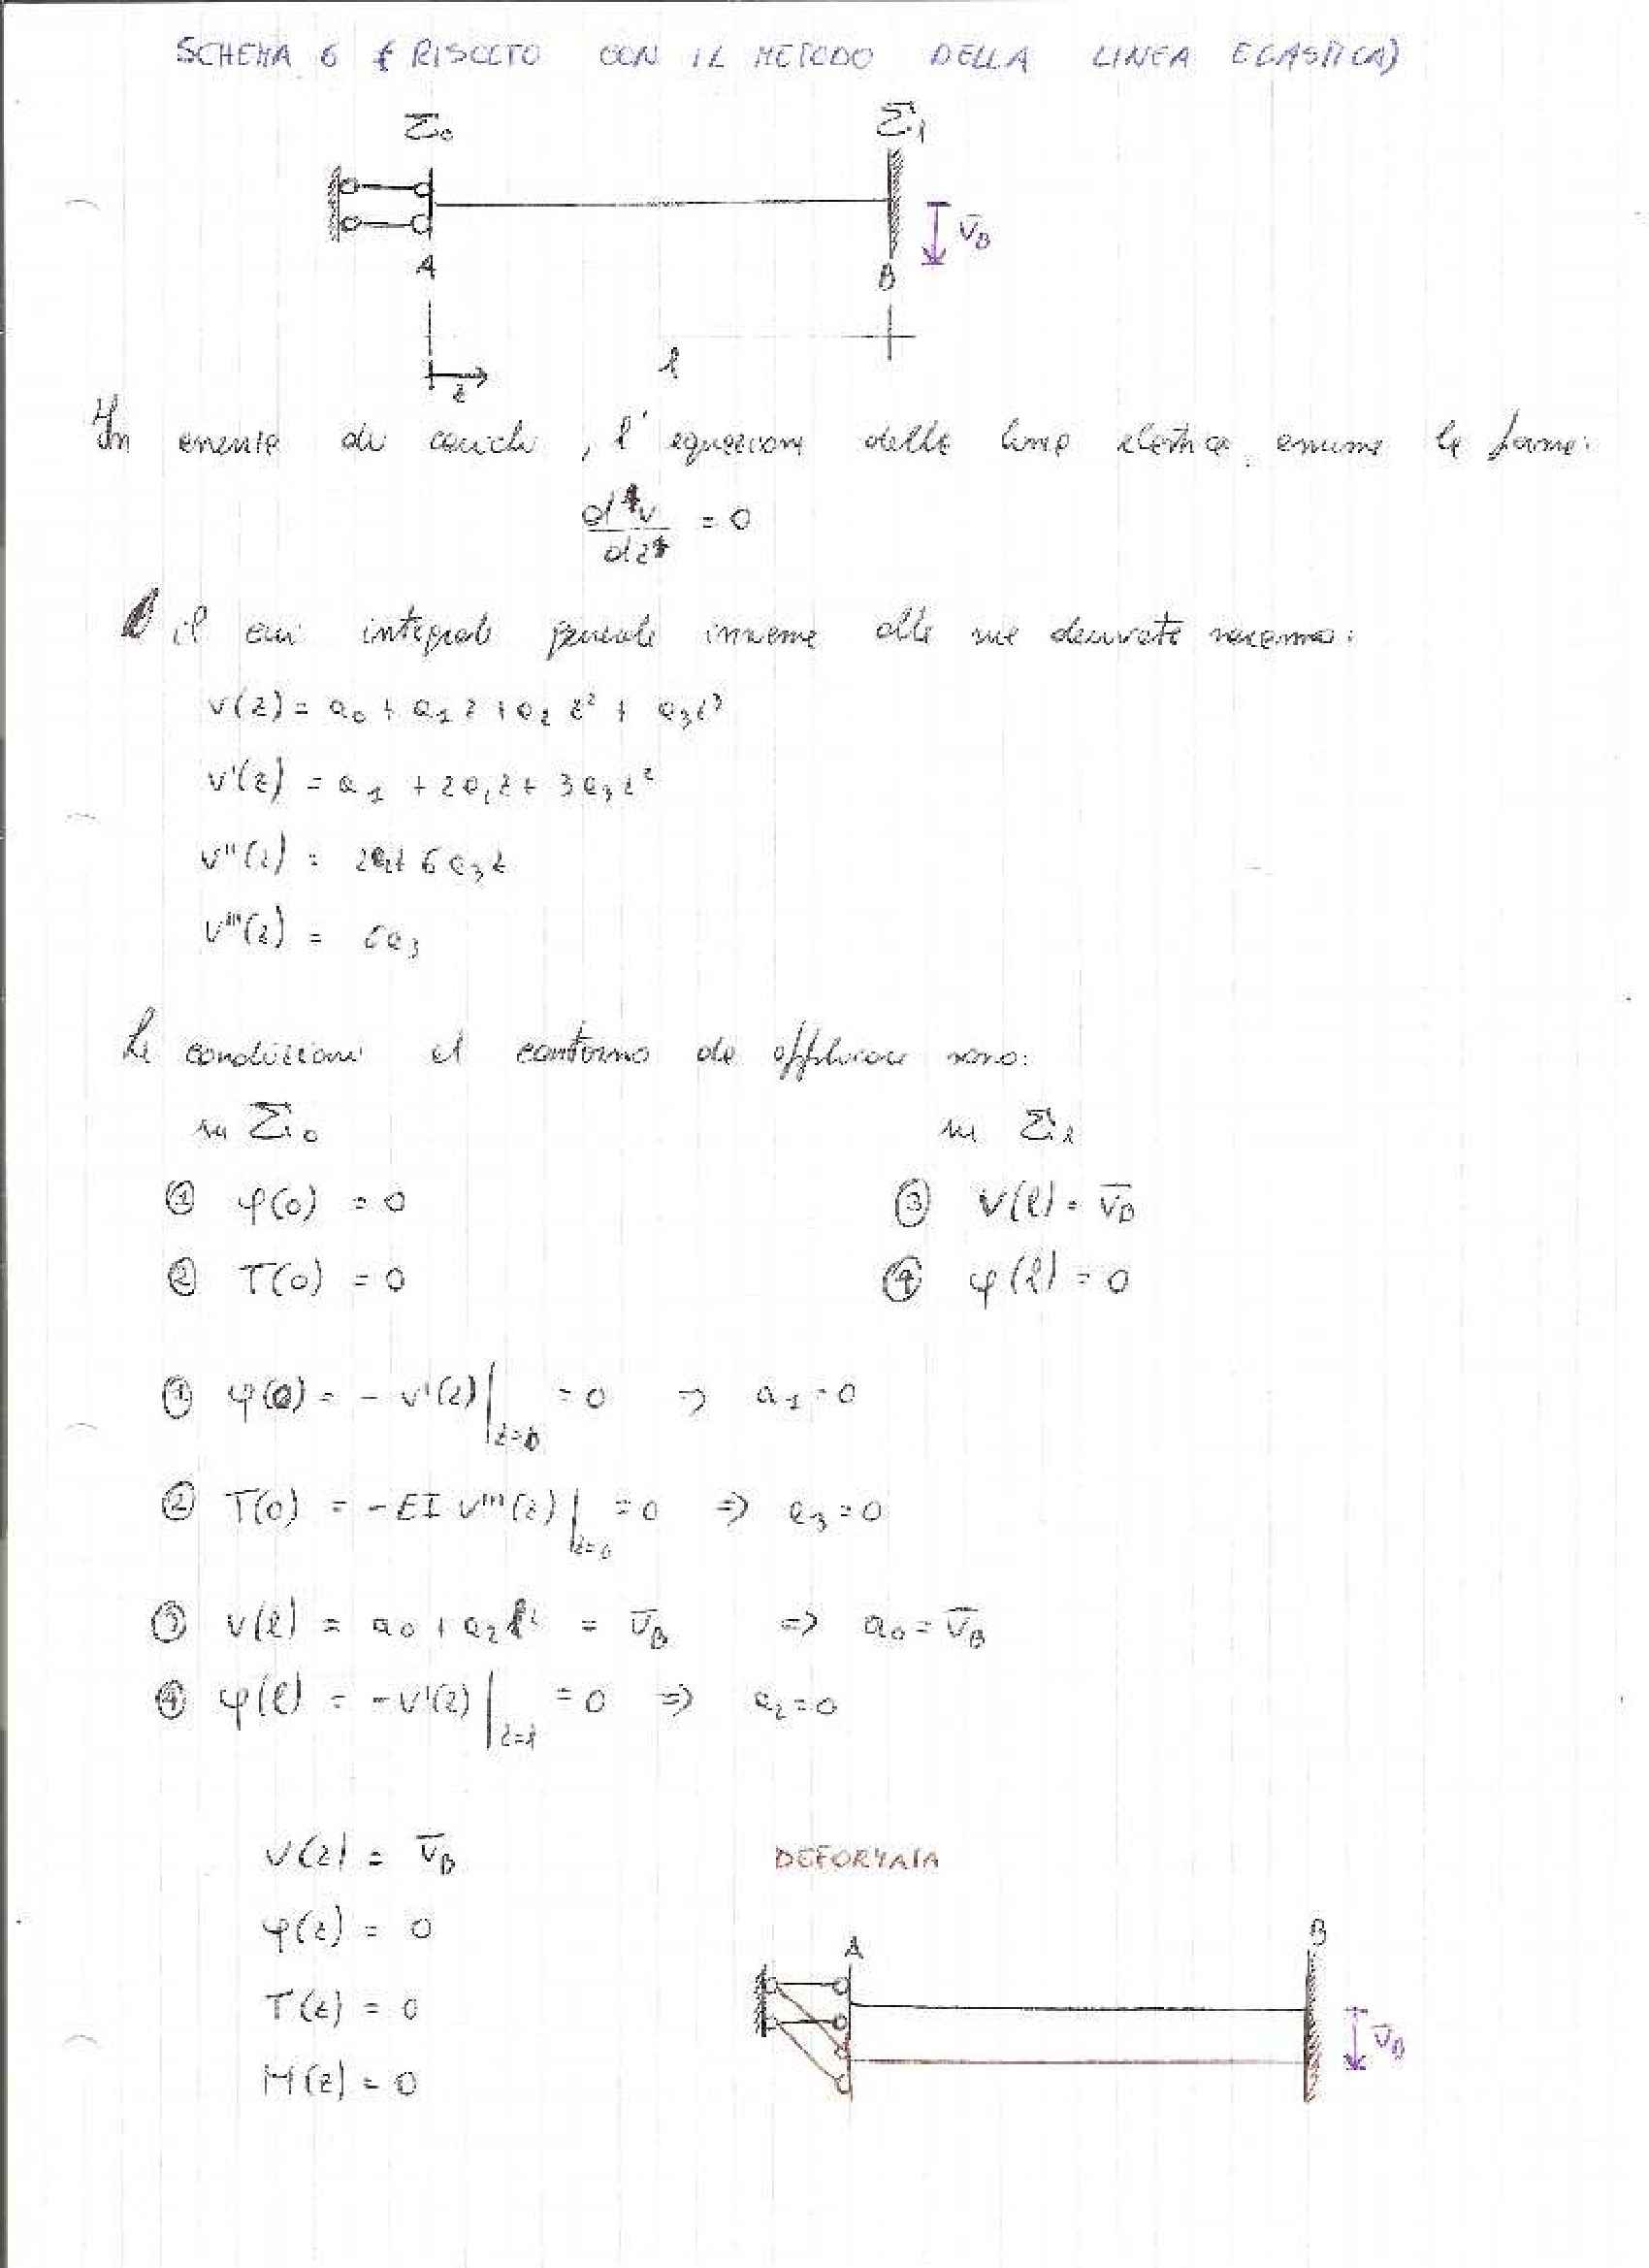 SCHEMA 6 (RISOLTO CON IL METODO DELLA LINEA ELASTICA)
Σ₀ Σₗ
v̄_B
A B
z l
In assenza di carichi, l'equazione della linea elastica assume la forma:
d⁴v/dz⁴ = 0
il cui integrale generale insieme alle sue derivate saranno:
v(z) = a₀ + a₁z + a₂z² + a₃z³
v'(z) = a₁ + 2a₂z + 3a₃z²
v''(z) = 2a₂ + 6a₃z
v'''(z) = 6a₃
Le condizioni al contorno da applicare sono:
su Σ₀ su Σₗ
① φ(0) = 0 ③ v(l) = v̄_B
② T(0) = 0 ④ φ(l) = 0
① φ(0) = - v'(z)|z=0 = 0 ⇒ a₁ = 0
② T(0) = -EI v'''(z)|z=0 = 0 ⇒ a₃ = 0
③ v(l) = a₀ + a₂l² = v̄_B ⇒ a₀ = v̄_B
④ φ(l) = -v'(z)|z=l = 0 ⇒ a₂ = 0
v(z) = v̄_B DEFORMATA
φ(z) = 0
T(z) = 0
M(z) = 0
A B
v̄_B